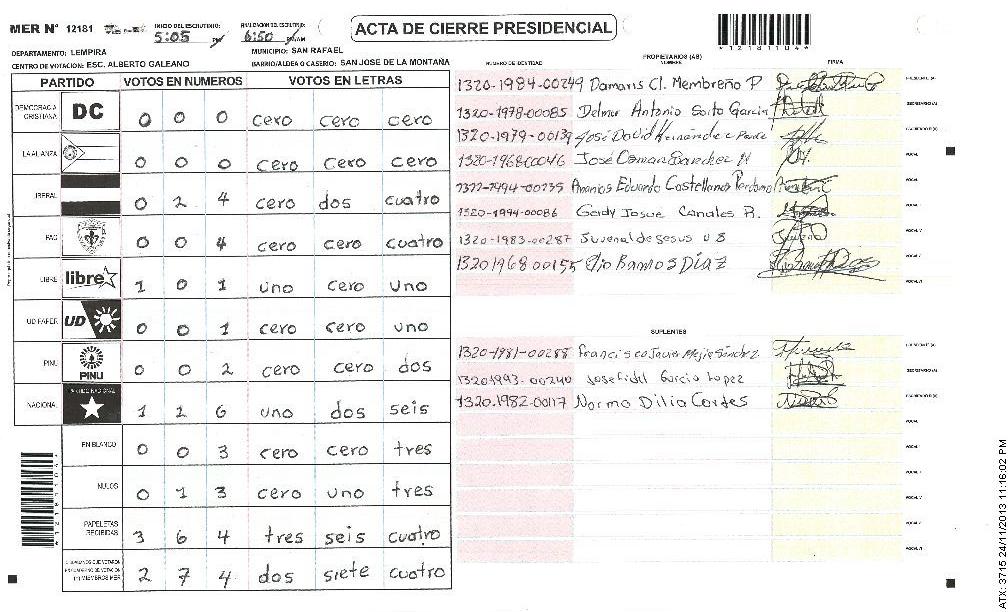 MER Nº 12181
INICIO DEL ESCRUTINIO: 5:05 PM
FINALIZACION DEL ESCRUTINIO: 6:50
ACTA DE CIERRE PRESIDENCIAL
*12181104*
DEPARTAMENTO: LEMPIRA
MUNICIPIO: SAN RAFAEL
CENTRO DE VOTACION: ESC. ALBERTO GALEANO
BARRIO/ALDEA O CASERIO: SAN JOSE DE LA MONTAÑA
PARTIDO VOTOS EN NUMEROS VOTOS EN LETRAS
DEMOCRACIA CRISTIANA DC 0 0 0 cero cero cero
LA ALIANZA 0 0 0 cero cero cero
LIBERAL 0 2 4 cero dos cuatro
PAC 0 0 4 cero cero cuatro
LIBRE libre 1 0 1 uno cero uno
UD FAPER UD 0 0 1 cero cero uno
PINU PINU 0 0 2 cero cero dos
NACIONAL PARTIDO NACIONAL 1 2 6 uno dos seis
EN BLANCO 0 0 3 cero cero tres
NULOS 0 1 3 cero uno tres
PAPELETAS RECIBIDAS 3 6 4 tres seis cuatro
CIUDADANOS QUE VOTARON EN CUADERNO DE VOTACION (+) MIEMBROS MER 2 7 4 dos siete cuatro
PROPIETARIOS (AS)
NUMERO DE IDENTIDAD NOMBRE FIRMA
1320-1984-00249 Damaris Cl. Membreño P PRESIDENTE (A)
1320-1978-00085 Delmer Antonio Soto Garcia SECRETARIO (A)
1320-1979-00139 José David Hernández ESCRUTADOR (A)
1320-1968-00046 José Osman Sanchez M VOCAL I
00235 Ananias Eduardo Castellanos Perdomo
1320-1994-00086 Gerdy Josue Canales R.
1320-1983-00287 Juvenal de Jesus
1320 1968 00155 Elio Ramos DÍAZ
SUPLENTES
1320-1981-00288 Francisco Javier Mejia Sánchez
1320 1993-00240 Jose Fidel Garcia Lopez SECRETARIO (A)
1320.1982-00117 Norma Dilia Cortes
ATX: 3715 24/11/2013 11:16:02 PM